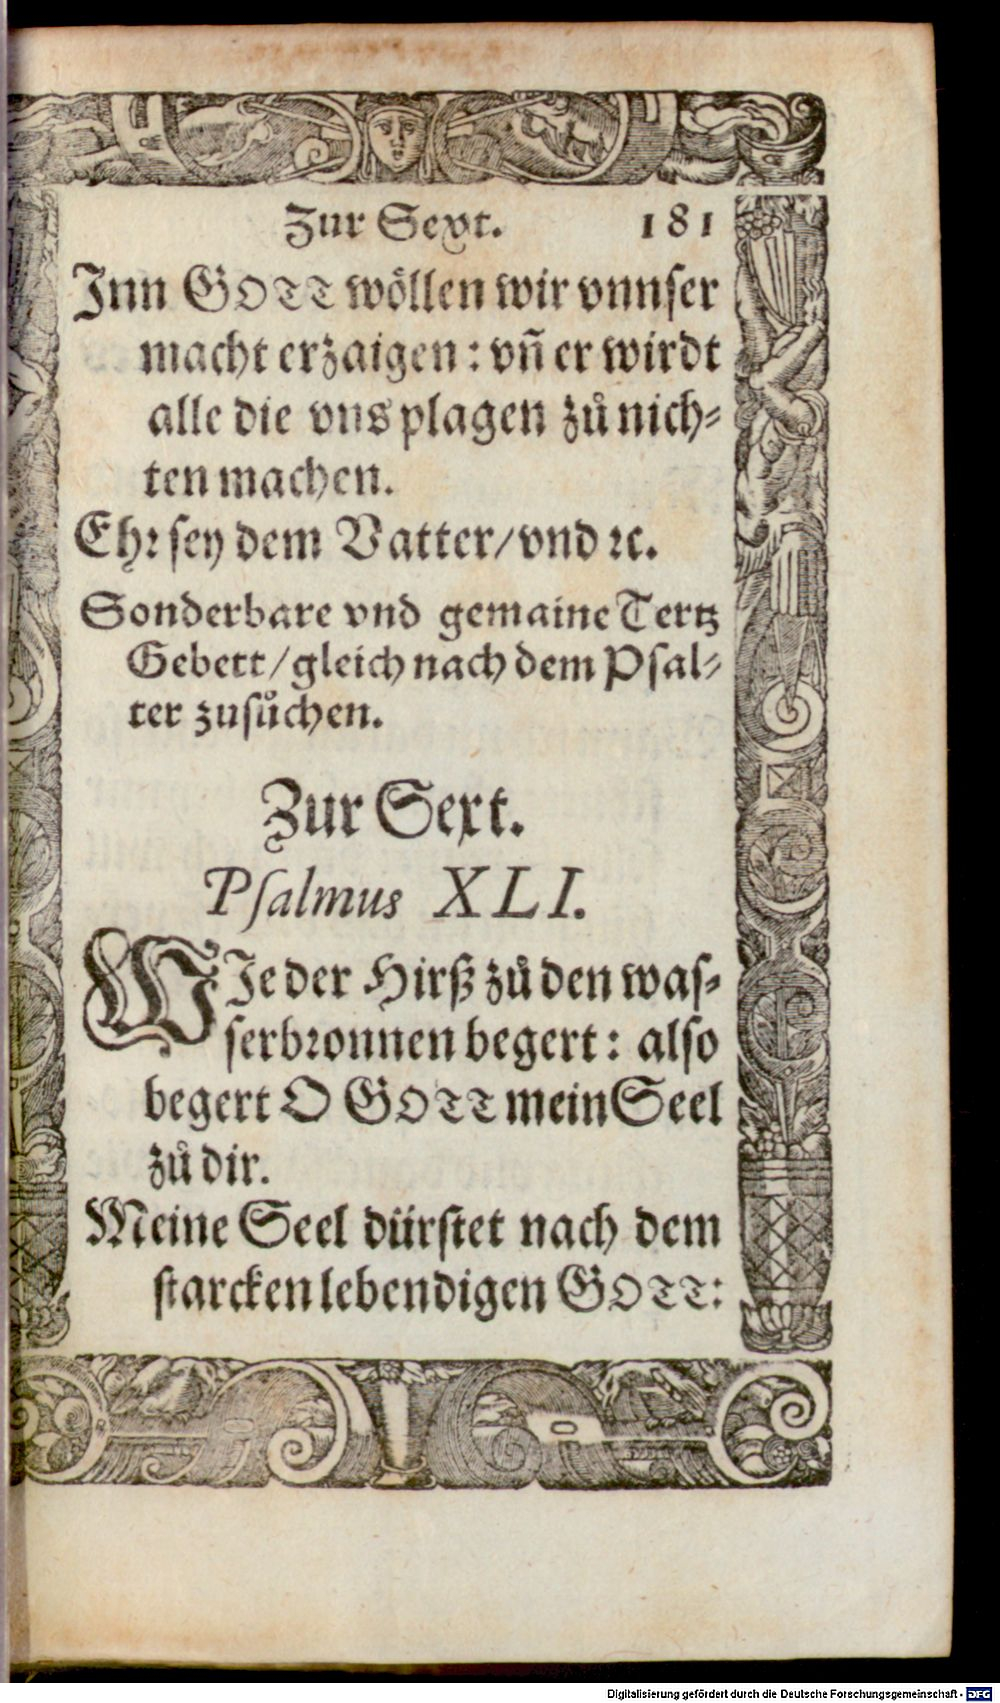 Zur Sext. 181
Jnn GOTT wöllen wir vnnſer
macht erzaigen : vñ er wirdt
alle die vns plagen zů nich⸗
ten machen.
Ehꝛ ſey dem Vatter/vnd ꝛc.
Sonderbare vnd gemaine Tertz
Gebett/gleich nach dem Pſal⸗
ter zuſůchen.
Zur Sext.
Pſalmus XLI.
WJe der Hirß zů den waſ⸗
ſerbꝛonnen begert : alſo
begert O GOTT mein Seel
zů dir.
Meine Seel dürſtet nach dem
ſtarcken lebendigen GOTT:
Digitalisierung gefördert durch die Deutsche Forschungsgemeinschaft - DFG